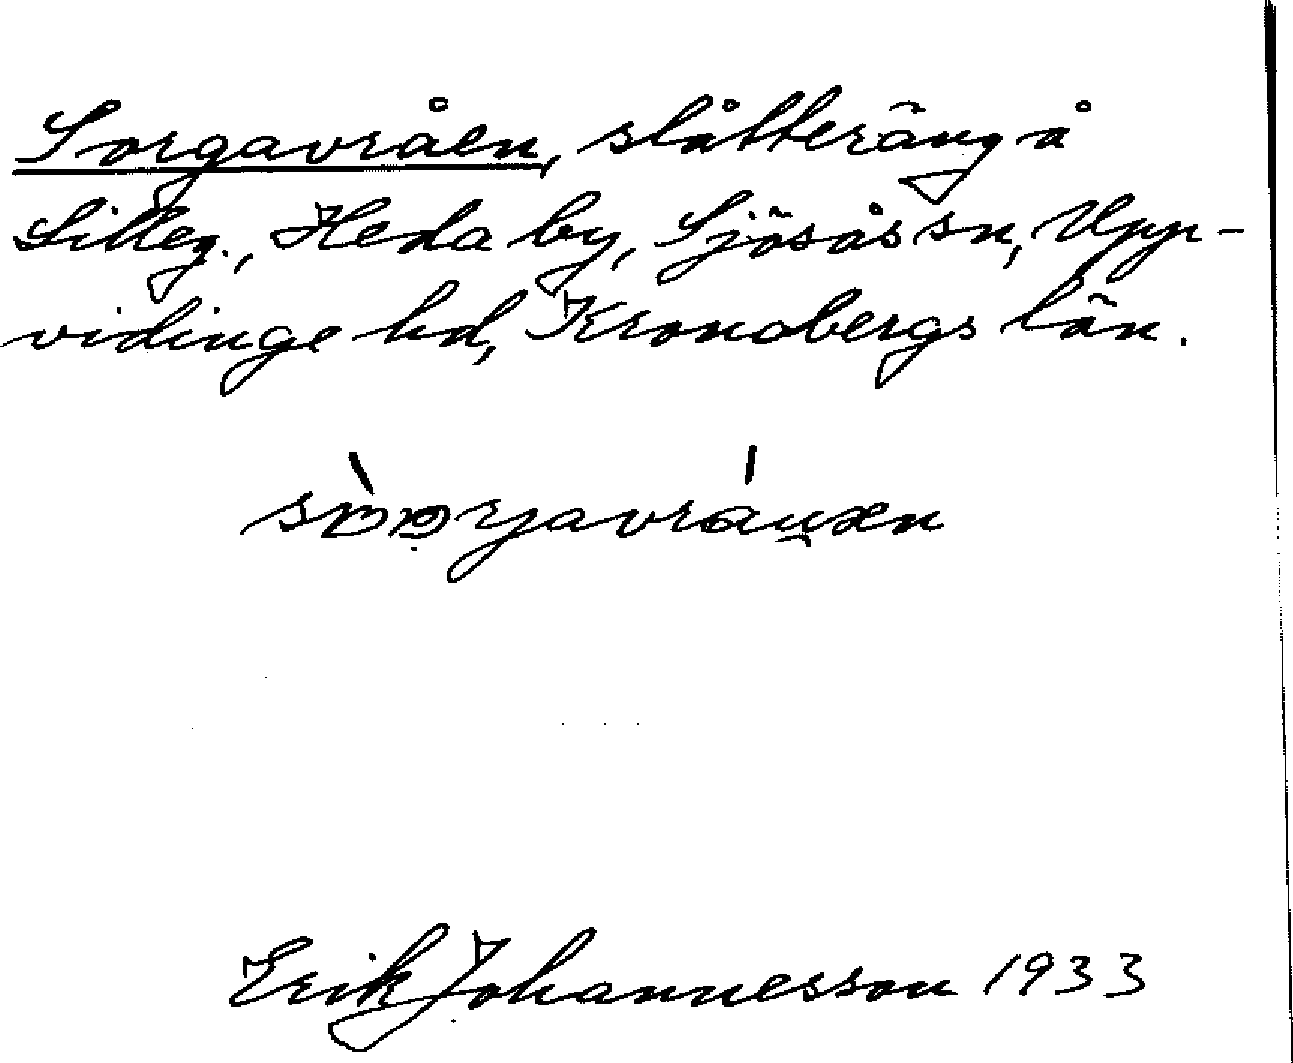 Sorgavråen, slåtteräng å
Lilleg., Heda by, Sjösås sn, Upp-
vidinge hd, Kronobergs län.
Erik Johannesson 1933